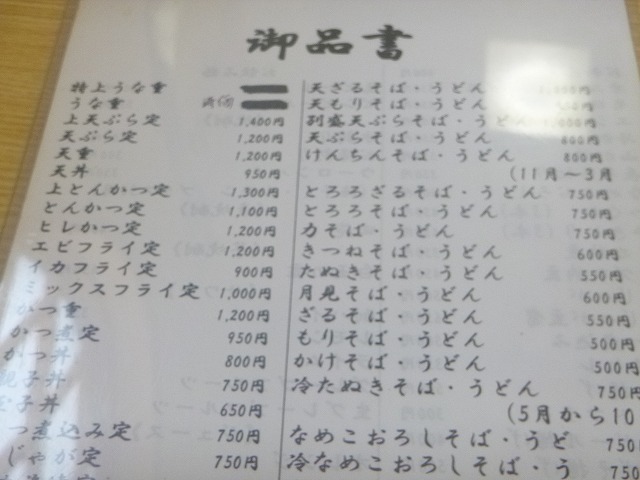 御品書
特上うな重
うな重 時価
上天ぷら定 1,400円
天ぷら定 1,200円
天重 1,200円
天丼 950円
上とんかつ定 1,300円
とんかつ定 1,100円
ヒレかつ定 1,200円
エビフライ定 1,200円
イカフライ定 900円
ミックスフライ定 1,000円
かつ重 1,200円
かつ煮定 950円
かつ丼 800円
親子丼 750円
玉子丼 650円
つ煮込み定 750円
じゃが定 750円
天ざるそば・うどん
天もりそば・うどん
別盛天ぷらそば・うどん
天ぷらそば・うどん 800円
けんちんそば・うどん 800円
(11月～3月
とろろざるそば・うどん 750円
とろろそば・うどん 750円
力そば・うどん 750円
きつねそば・うどん 600円
たぬきそば・うどん 550円
月見そば・うどん 600円
ざるそば・うどん 550円
もりそば・うどん 500円
かけそば・うどん 500円
冷たぬきそば・うどん 750円
(5月から10
なめこおろしそば・うど 750円
冷なめこおろしそば・う 750